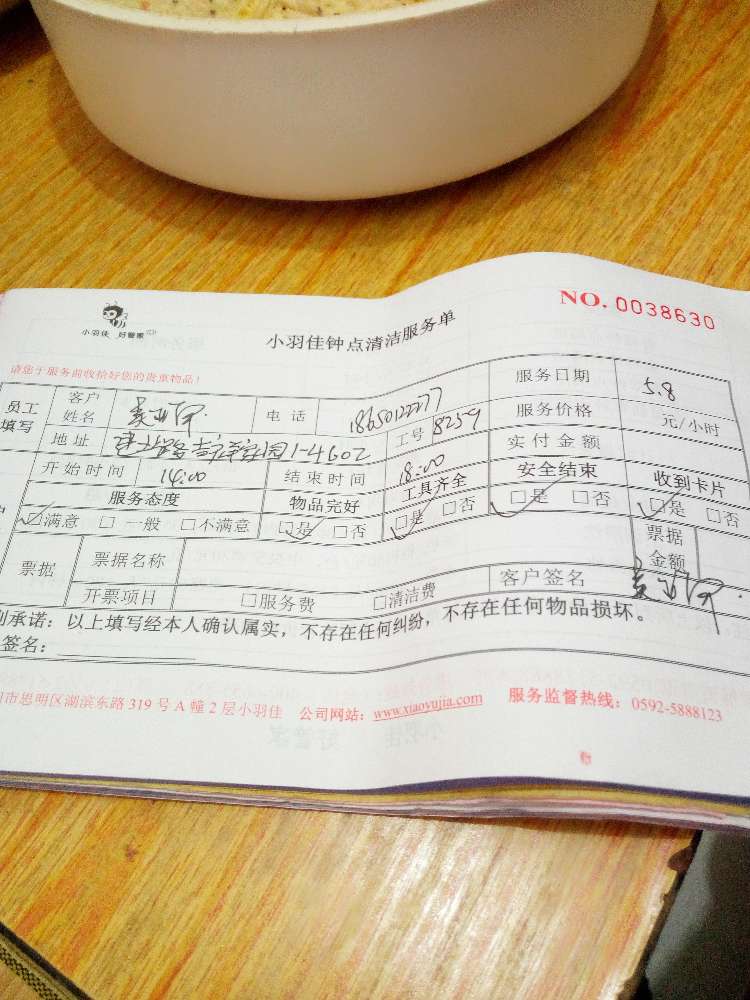 NO. 0038630
小羽佳 好管家
小羽佳钟点清洁服务单
请您于服务前收拾好您的贵重物品!
员工填写 客户姓名 电话 18650122277 服务日期 5.8
地址 1-4602 工号 8259 服务价格 元/小时
开始时间 14:00 结束时间 18:00 实付金额
服务态度 物品完好 工具齐全 安全结束 收到卡片
☑满意 □一般 □不满意 ☑是 □否 ☑是 □否 ☑是 □否 ☑是 □否
票据 票据名称 票据金额
开票项目 □服务费 □清洁费 客户签名
承诺:以上填写经本人确认属实,不存在任何纠纷,不存在任何物品损坏。
签名:
市思明区湖滨东路319号A幢2层小羽佳 公司网站:www.xiaoyujia.com 服务监督热线:0592-5888123